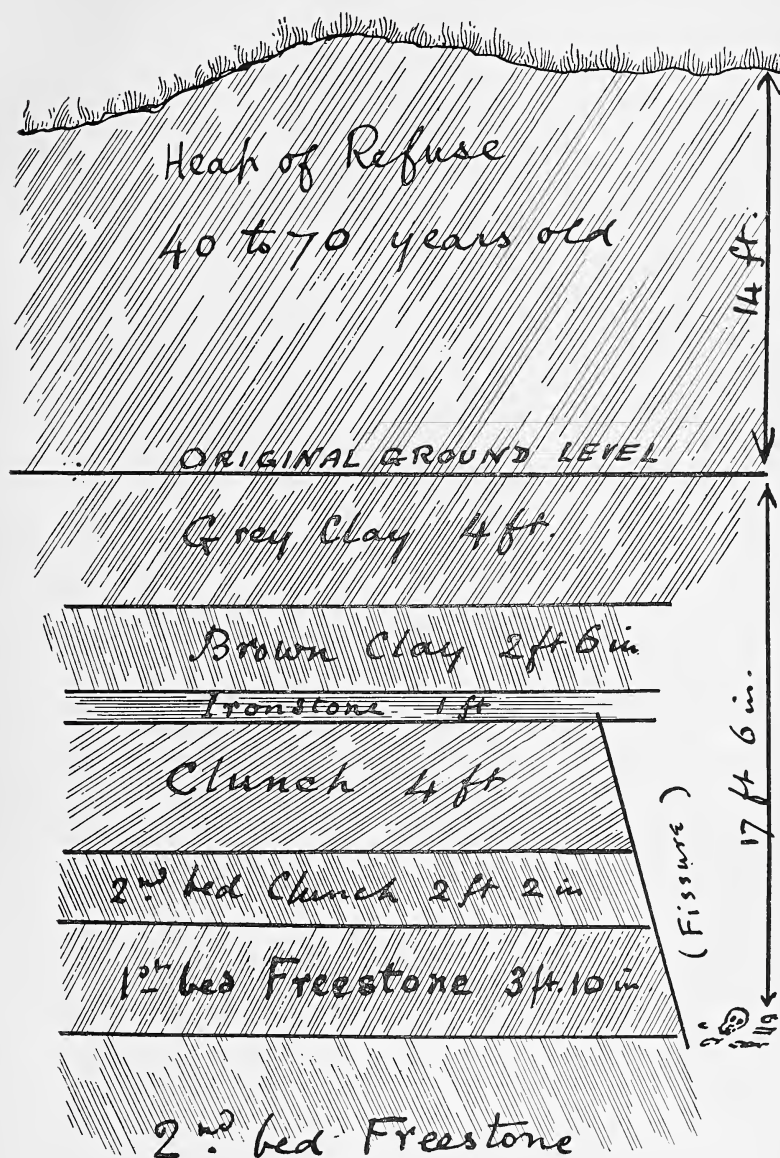 Heap of Refuse
40 to 70 years old
14 ft.
ORIGINAL GROUND LEVEL
Grey Clay 4 ft.
Brown Clay 2 ft 6 in
Ironstone 1 ft
Clunch 4 ft
2nd bed Clunch 2 ft 2 in
1st bed Freestone 3 ft. 10 in
(Fissure)
17 ft 6 in.
2nd bed Freestone